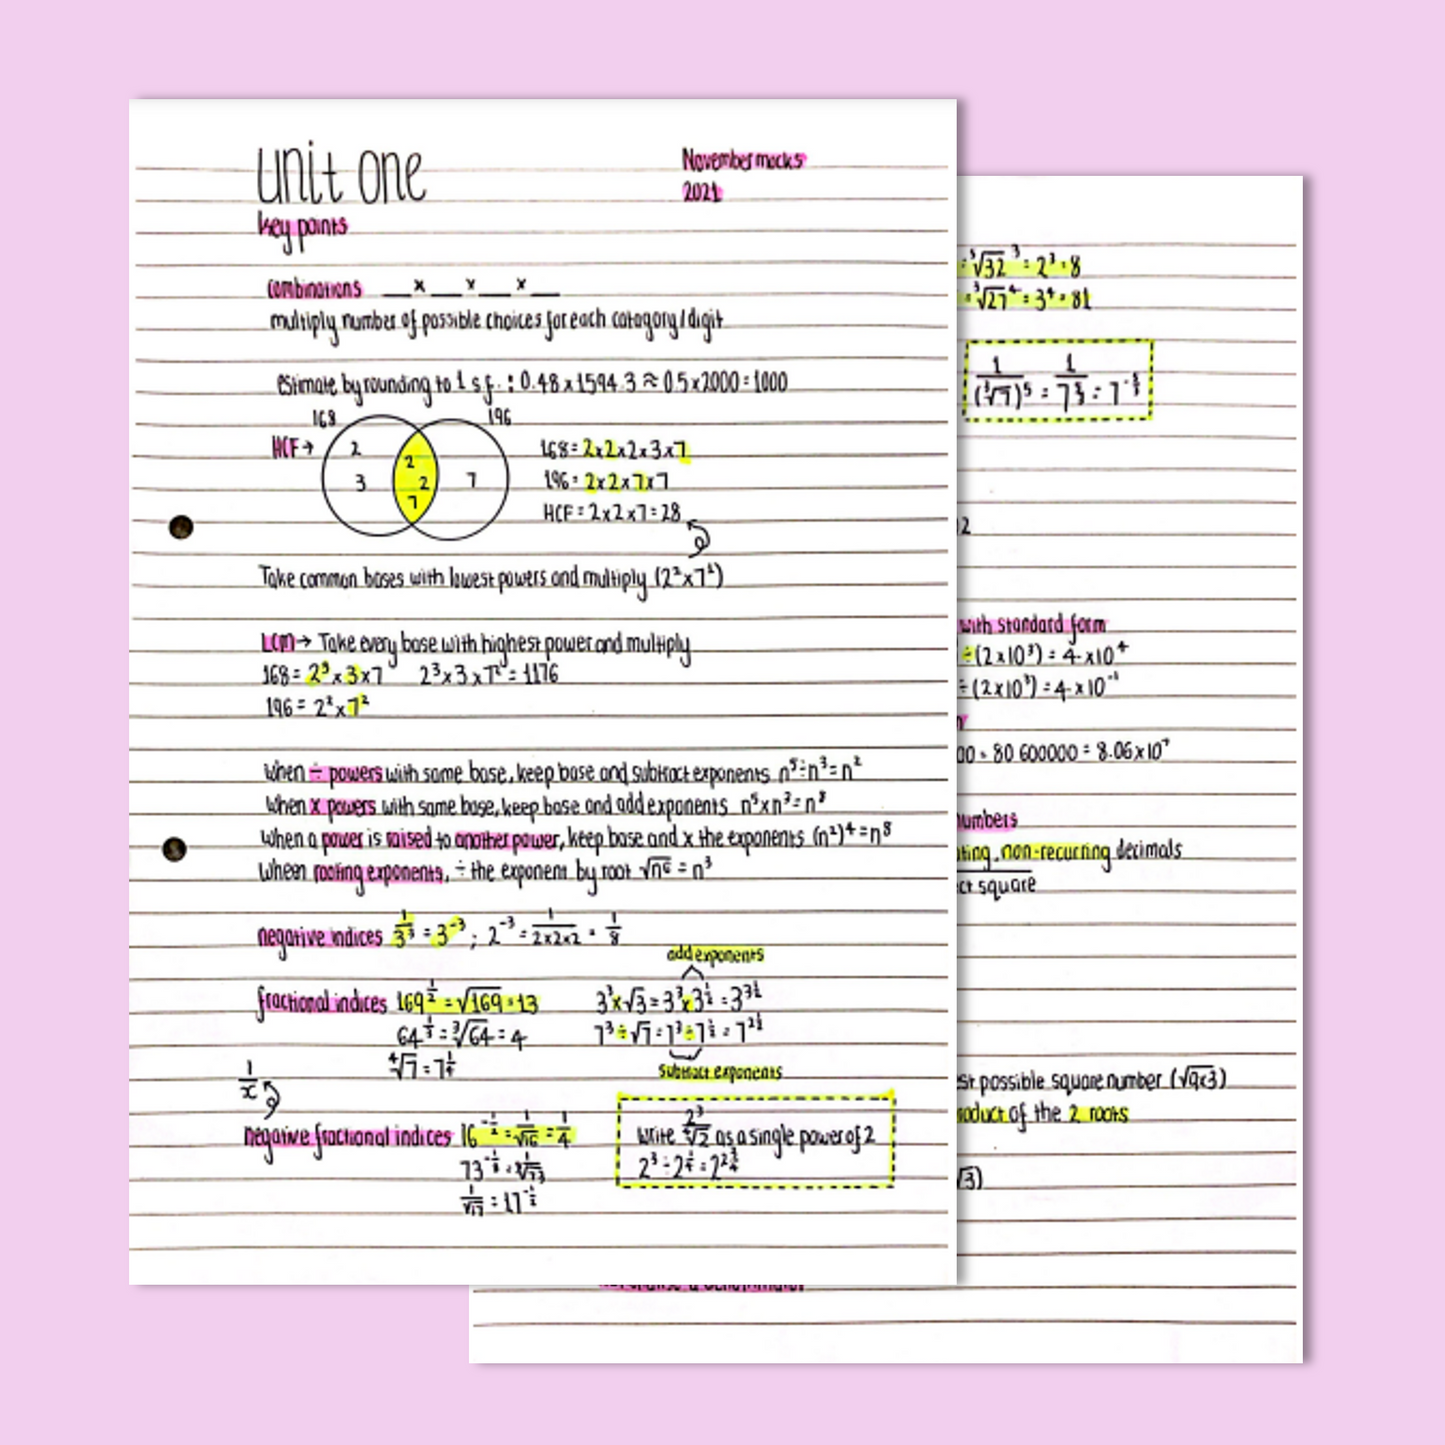 unit one
November mocks
2021
key points
combinations __ x __ x __ x __
multiply number of possible choices for each catagory/digit
estimate by rounding to 1 s.f. : 0.48 x 1594.3 ≈ 0.5 x 2000 = 1000
168 196
HCF → 2 2 3 2 7 7
168 = 2x2x2x3x7
196 = 2x2x7x7
HCF = 2x2x7 = 28
Take common bases with lowest powers and multiply (2² x 7¹)
LCM → Take every base with highest power and multiply
168 = 2³ x 3 x 7 2³ x 3 x 7² = 1176
196 = 2² x 7²
When ÷ powers with same base, keep base and subtract exponents n⁵ ÷ n³ = n²
When x powers with same base, keep base and add exponents n⁵ x n³ = n⁸
When a power is raised to another power, keep base and x the exponents (n²)⁴ = n⁸
When rooting exponents, ÷ the exponent by root √n⁶ = n³
negative indices 1/3³ = 3⁻³ ; 2⁻³ = 1/(2x2x2) = 1/8
add exponents
fractional indices 169^(1/2) = √169 = 13 3³ x √3 = 3³ x 3^(1/2) = 3^(3 1/2)
64^(1/3) = ³√64 = 4 7³ ÷ √7 = 7³ ÷ 7^(1/2) = 7^(2 1/2)
⁴√7 = 7^(1/4)
subtract exponents
1/x
negative fractional indices 16^(-1/2) = 1/√16 = 1/4
1/√17 = 17^(-1/2)
Write 2³/⁴√2 as a single power of 2
2³ ÷ 2^(1/4) = 2^(2 3/4)
= ⁵√32³ = 2³ = 8
= ³√27⁴ = 3⁴ = 81
with standard form
÷ (2x10³) = 4 x 10⁴
÷ (2x10³) = 4 x 10⁻¹
00 = 80 600000 = 8.06 x 10⁷
numbers
non-recurring decimals
square
possible square number (√9x3)
product of the 2 roots
√3)